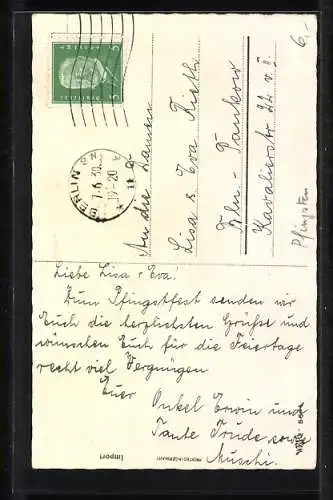 Liebe Lisa u Eva!
Zum Pfingstfest senden wir
Euch die herzlichsten Grüße und
wünschen Euch für die Feiertage
recht viel Vergnügen
Euer
Onkel Erwin und
Tante Trude sowie
Muschi.
An die Damen
Lisa & Eva
Bln-Pankow
Kavalierstr 22 v. II
Pfingsten
6.-
BERLIN
7.6.30.
19-20
5
5
Import